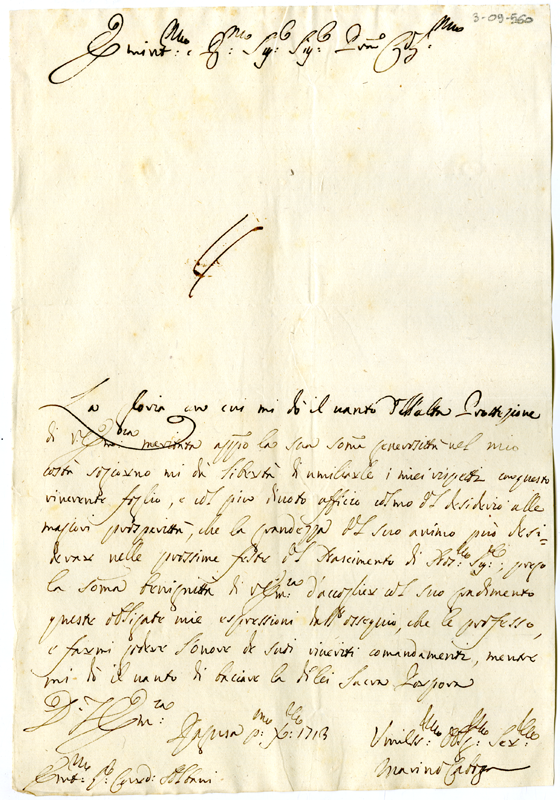 3-09-560
Emint.mo e R.mo Sig.r Sig.r Pron Col.mo
La gloria con cui mi dò il vanto dell'alta Protezione
di V. Em.za meritata appo la sua soma generosità nel mio
costà mi dà libertà di umiliarle i miei rispetti con questo
riverente foglio, e col più divoto ufficio colmo del desiderio alle
maggiori prosperità, che la grandezza del suo animo può desi=
derare nelle prossime feste del Nascimento di Nos.ro Sig.re, prego
la soma benignità di V. Em.za d'accoglier col suo gradimento
queste obligate mie espressioni dell'ossequio, che le professo,
e farmi godere l'onore de suoi riveriti comandamenti, mentre
mi dò il vanto di baciare la di lei Sacra Porpora
D. V. Em.za
Ragusa p.mo X.bre 1713
Umiliss.mo Obl.mo Ser.
Emin.mo S. Card. Albani
Marino